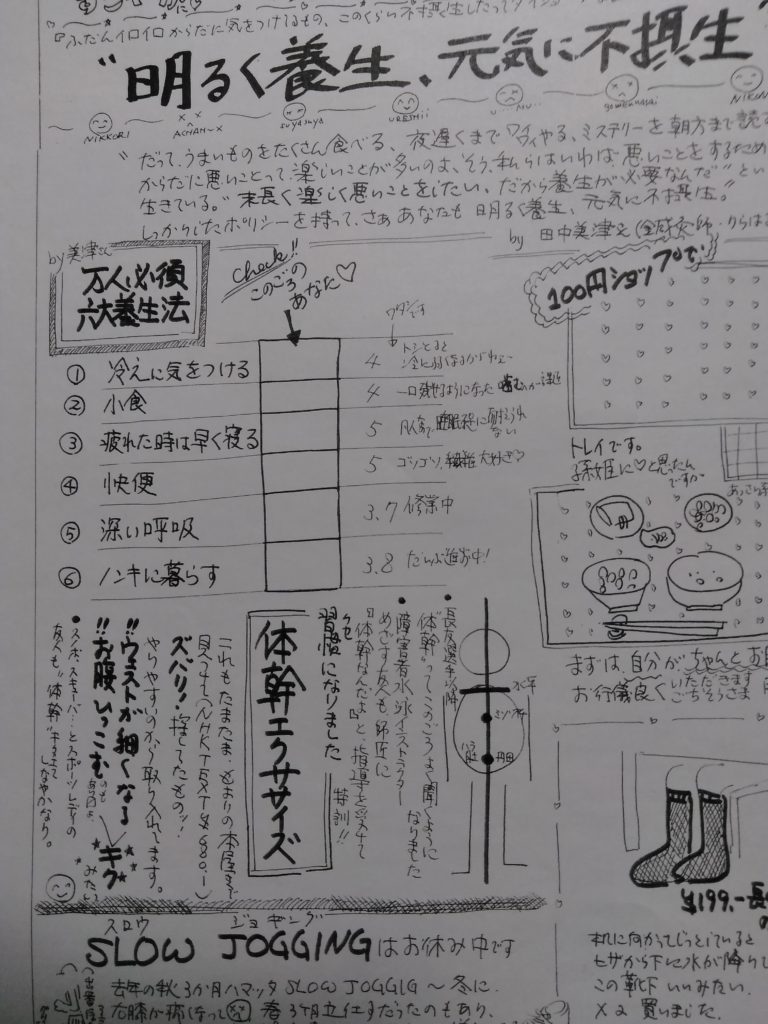 『ふだんイロイロからだに気をつけてるもの、このくらい不摂生したって
"明るく養生、元気に不摂生"
NIKKORI
ACHAN~X
suyasuya
URESHii
gomennasai
"だって、うまいものをたくさん食べる、夜遅くまで やる、ミステリーを朝方まで読
からだに悪いことって、楽しいことが多いのよ、そう、私らはいわば、悪いことをするため
生きている。"末長く楽しく悪いことをしたい、だから養生が必要なんだ"とい
しっかりしたポリシーを持って、さぁ あなたも 明るく養生、元気に不摂生。"
by 田中美津 (鍼灸師・
by美津さん
万人必須
六大養生法
Check!!
このごろの
あなた♡
ワタシです
① 冷えに気をつける
4
② 小食
4 一口残せるようになった
③ 疲れた時は早く寝る
5
ない
④ 快便
5 大好き♡
⑤ 深い呼吸
3.7 修業中
⑥ ノンキに暮らす
3.8 だいぶ進歩中!
100円ショップで
トレイです。
孫姫に♡と思ったん
ですが
まずは、自分がちゃんと
お行儀良く いただきます
ごちそうさま
水平
ミゾオチ
丹田
● 長友選手以降
"体幹"ってこのごろよく聞くように
なりました
● 障害者水泳インストラクター
めざす友人も、師匠に
『体幹なんだよ』と、指導を受けて
特訓!!
習慣になりました
体幹エクササイズ
これもたまたま、とまりの本屋で
見つけて(NHK TEXT ¥680.-)
ズバリ!捨ててたものッ!
やりやすいのから取り入れてます。
!!ウェストが細くなる
!!お腹ひっこむ
キク
みたい
● スノボ、スキューバ…とスポーツレディの
友人も"体幹"
しなやかなり。
スロウ ジョギング
SLOW JOGGINGはお休み中です
去年の秋 3か月ハマッタ SLOW JOGGIG~冬に
右膝が 春 3ヶ月立仕事だったのもあり、
¥199.-
机に向かってじっとしていると
ヒザから下に水が降りて
この靴下いいみたい、
×2 買いました。